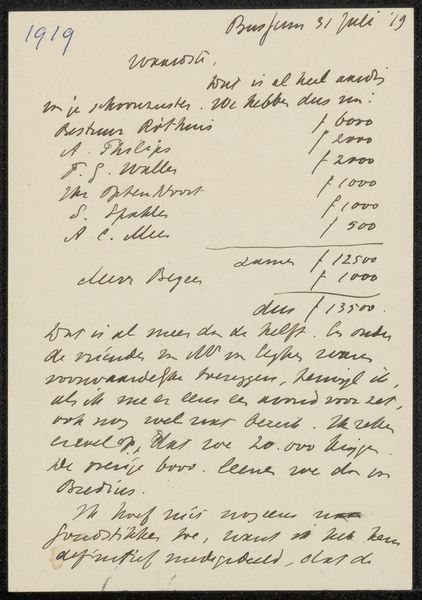 1919
Bussum 31 Juli '19
Waarde,
Dat is al heel aardig
van je schoonzuster. We hebben dus nu:
Bestuur Rothuis f 6000
A. Philips f 2000
F. G. Waller f 2000
f 1000
S. f 1000
A. C. Mees f 500
samen f 12500
Mevr f 1000
dus f 13500.
Dat is al meer dan de helft. En onder
de vrienden van Mr van waren
voorwaardelijke toezeggen, terwijl ik,
als ik me er eens een avond voor zet,
ook nog wel wat bereik. Ik reken
erevel op, dat we 20.000 krijgen.
De overige 6000. leenen we dan van
Bredius.
Ik hoef niet nog eens
toe, want ik heb hem
definitief medegedeeld, dat de